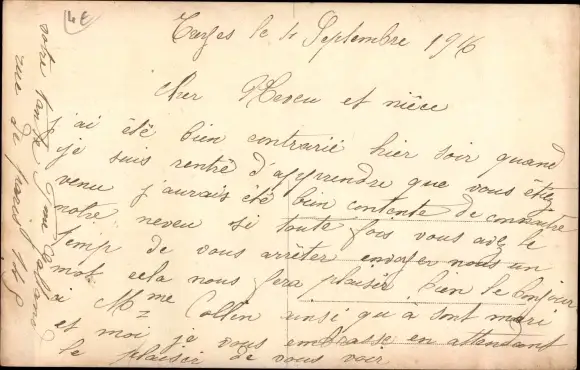 4€
le 4 Septembre 1916
cher Neveu et nièce
j'ai été bien contrarié hier soir quand
je suis rentré d'apprendre que vous étiez
venu j'aurais été bien contente de connaitre
notre neveu si toute fois vous avez le
temp de vous arrêter envoyer nous un
mot cela nous fera plaisir bien le bonjour
à Mme Collin ainsi qu'à sont mari
et moi je vous embrasse en attendant
le plaisir de vous voir
votre tante
rue de